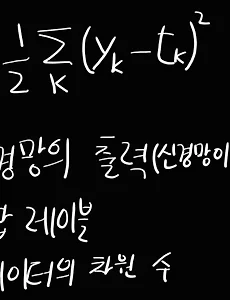 1/2 Σ_K (y_k − t_k)²
경망의 출력(신경망이
레이블
이터의 차원 수